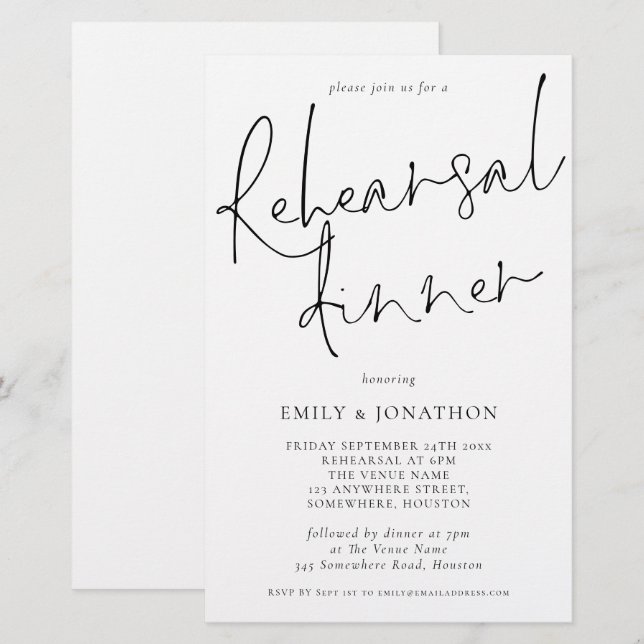 please join us for a
Rehearsal
dinner
honoring
EMILY & JONATHON
FRIDAY SEPTEMBER 24TH 20XX
REHEARSAL AT 6PM
THE VENUE NAME
123 ANYWHERE STREET,
SOMEWHERE, HOUSTON
followed by dinner at 7pm
at The Venue Name
345 Somewhere Road, Houston
RSVP BY SEPT 1ST TO EMILY@EMAILADDRESS.COM